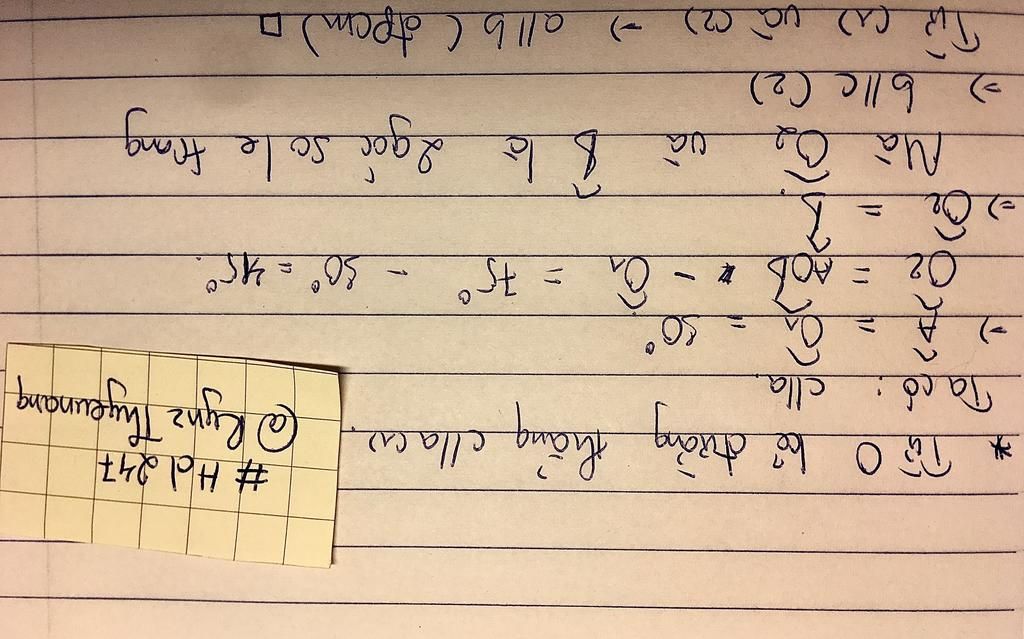 * Từ O kẻ đường thẳng c//a (1).
Ta có: c//a.
=> Â = Ô1 = 30°
Ô2 = AÔB - Ô1 = 75° - 30° = 45°.
=> Ô2 = B̂.
Mà Ô2 và B̂ là 2 góc so le trong
=> b//c (2)
Từ (1) và (2) => a//b (đpcm) □
# Hd 247
@ Rynz Thyeunang